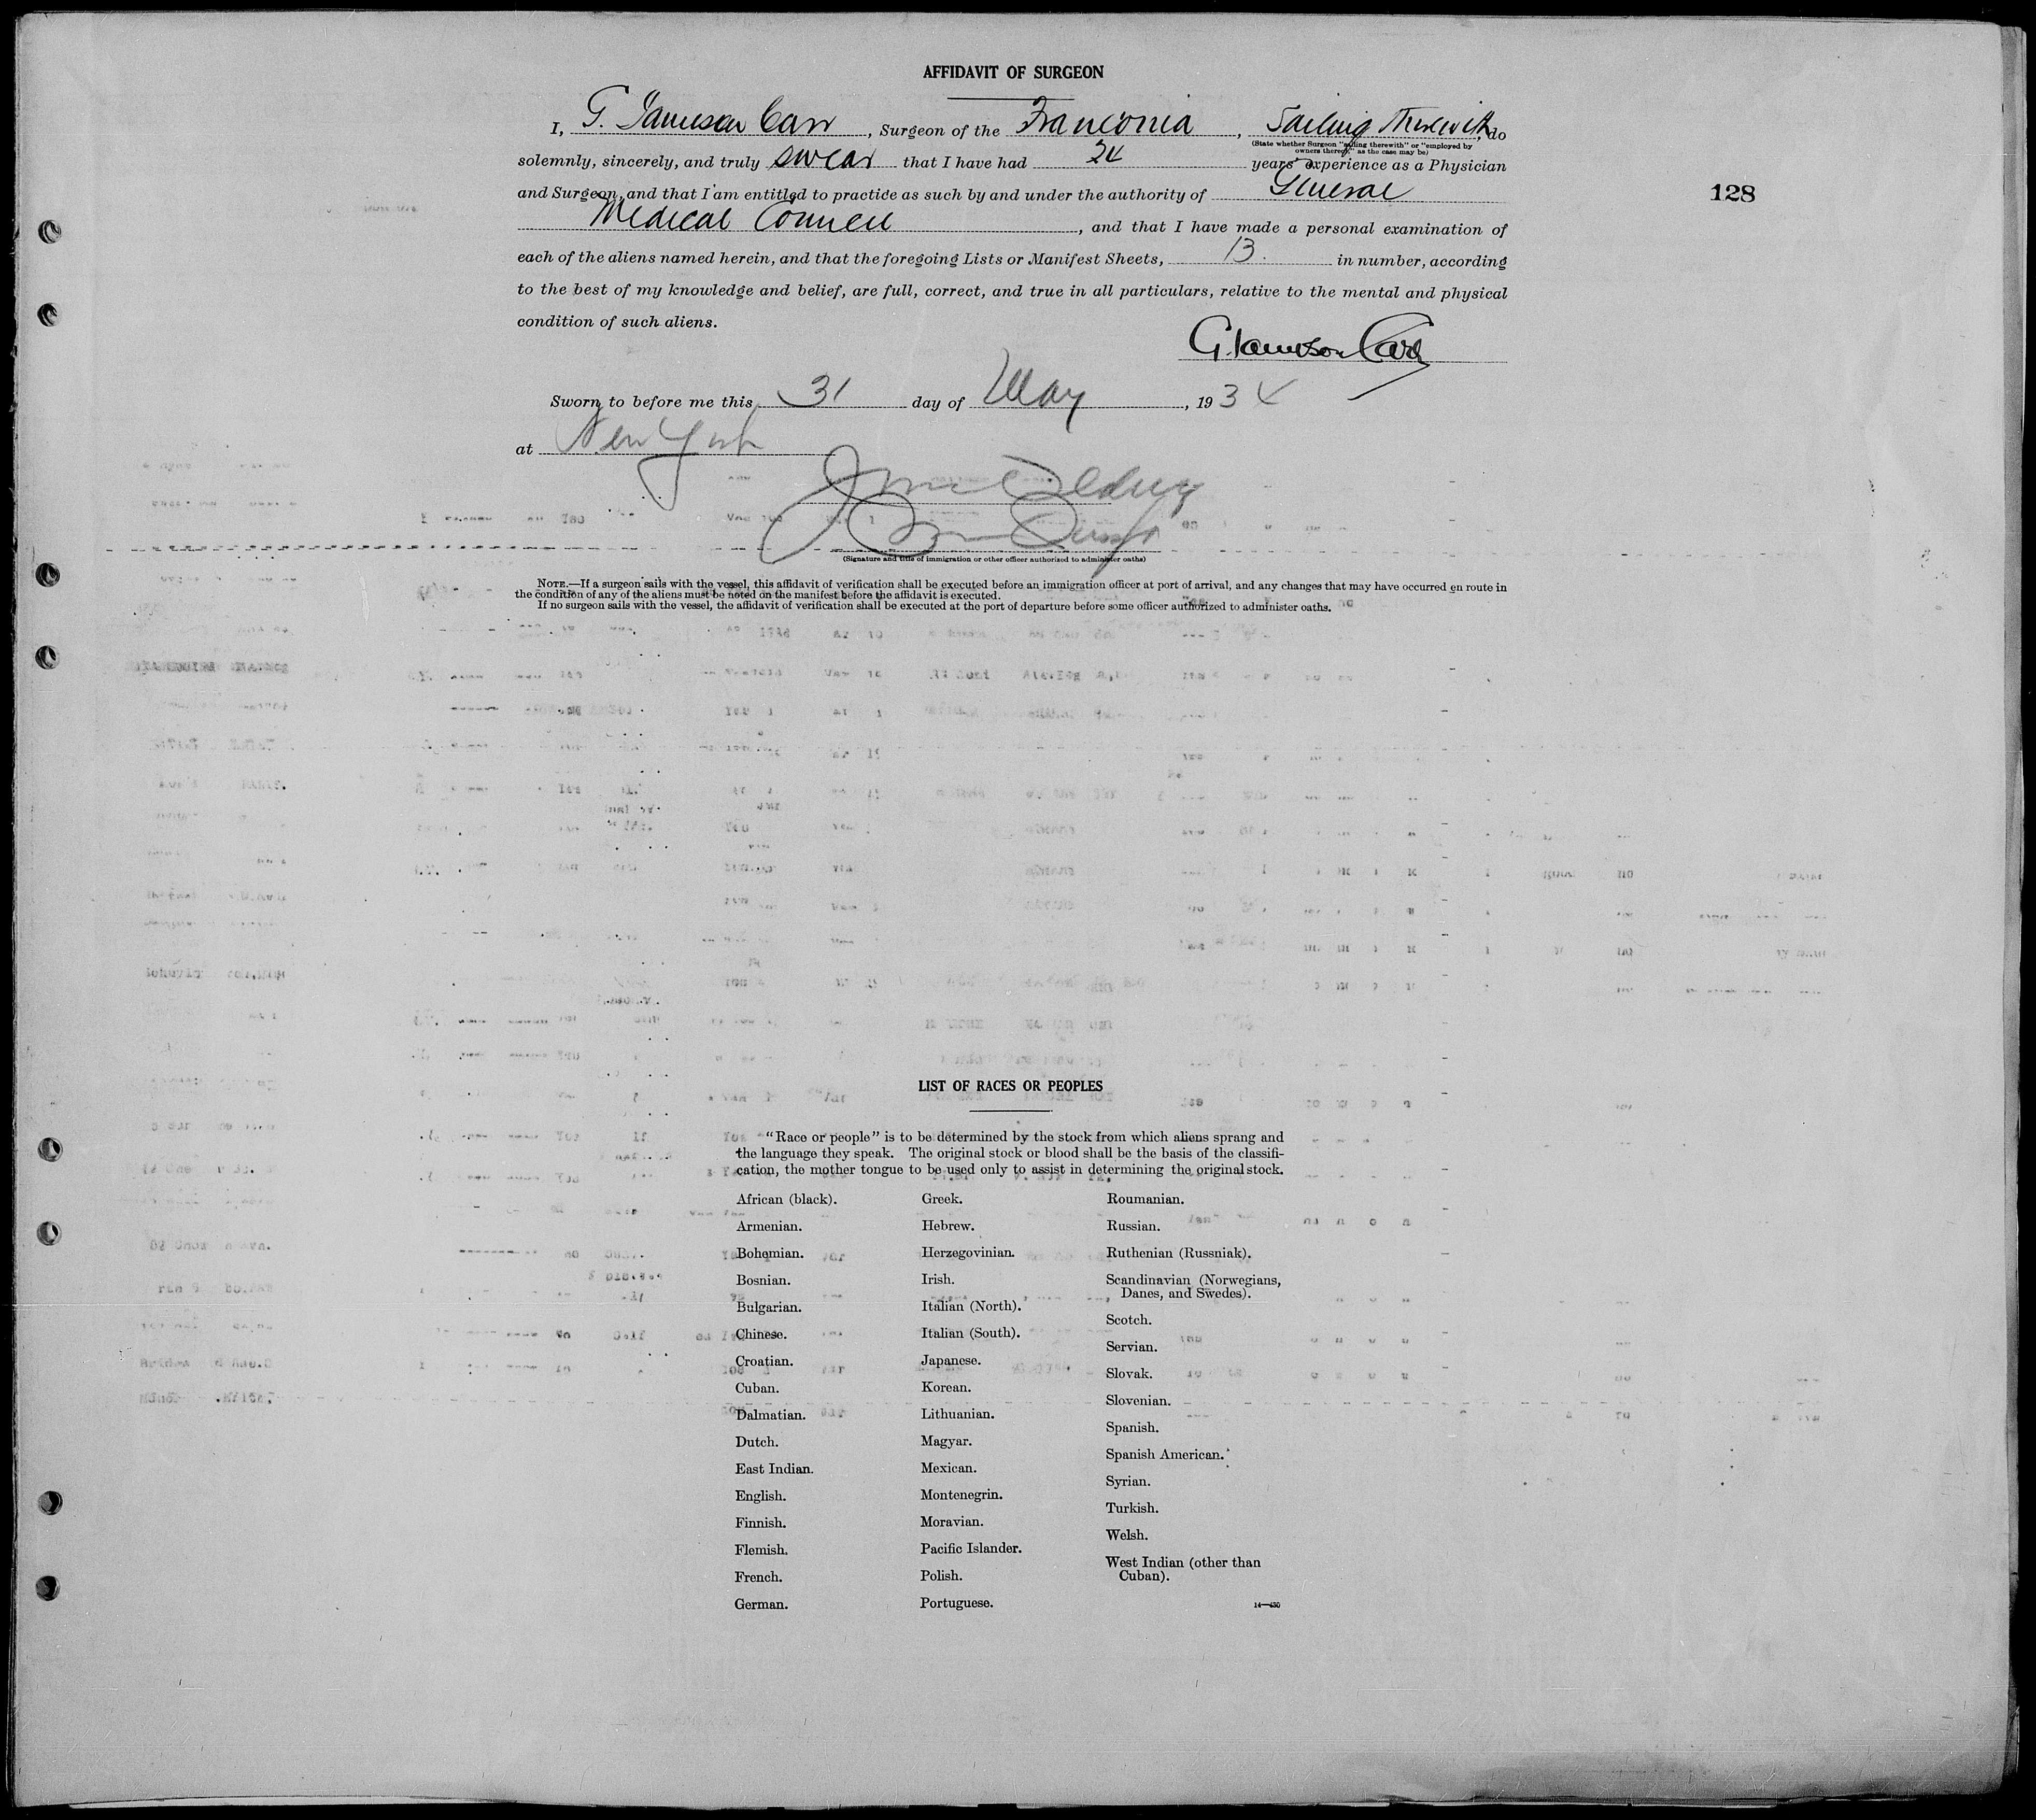 AFFIDAVIT OF SURGEON
I, G. Jameson Carr, Surgeon of the Franconia, Sailing Therewith, do
(State whether Surgeon "sailing therewith" or "employed by
owners thereof," as the case may be)
solemnly, sincerely, and truly swear that I have had 24 years' experience as a Physician
and Surgeon, and that I am entitled to practice as such by and under the authority of General
128
Medical Council, and that I have made a personal examination of
each of the aliens named herein, and that the foregoing Lists or Manifest Sheets, 13. in number, according
to the best of my knowledge and belief, are full, correct, and true in all particulars, relative to the mental and physical
condition of such aliens.
G. Jameson Carr
Sworn to before me this 31 day of May, 1934
at New York
(Signature and title of immigration or other officer authorized to administer oaths)
NOTE.—If a surgeon sails with the vessel, this affidavit of verification shall be executed before an immigration officer at port of arrival, and any changes that may have occurred en route in
the condition of any of the aliens must be noted on the manifest before the affidavit is executed.
If no surgeon sails with the vessel, the affidavit of verification shall be executed at the port of departure before some officer authorized to administer oaths.
LIST OF RACES OR PEOPLES
"Race or people" is to be determined by the stock from which aliens sprang and
the language they speak. The original stock or blood shall be the basis of the classifi-
cation, the mother tongue to be used only to assist in determining the original stock.
African (black).
Armenian.
Bohemian.
Bosnian.
Bulgarian.
Chinese.
Croatian.
Cuban.
Dalmatian.
Dutch.
East Indian.
English.
Finnish.
Flemish.
French.
German.
Greek.
Hebrew.
Herzegovinian.
Irish.
Italian (North).
Italian (South).
Japanese.
Korean.
Lithuanian.
Magyar.
Mexican.
Montenegrin.
Moravian.
Pacific Islander.
Polish.
Portuguese.
Roumanian.
Russian.
Ruthenian (Russniak).
Scandinavian (Norwegians,
Danes, and Swedes).
Scotch.
Servian.
Slovak.
Slovenian.
Spanish.
Spanish American.
Syrian.
Turkish.
Welsh.
West Indian (other than
Cuban).
14—430